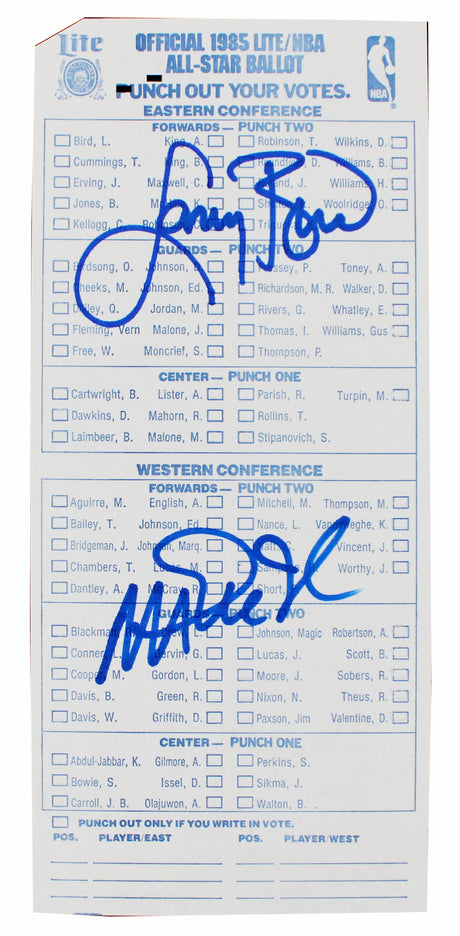 Lite OFFICIAL 1985 LITE/NBA
ALL-STAR BALLOT
PUNCH OUT YOUR VOTES.
NBA
EASTERN CONFERENCE
FORWARDS — PUNCH TWO
Bird, L. King, A. Robinson, T. Wilkins, D.
Cummings, T. King, B. D. Williams, B.
Erving, J. Maxwell, C. J. Williams, H.
Jones, B. K. Woolridge, O.
Kellogg, C. Robinson,
GUARDS — PUNCH TWO
Birdsong, O. Johnson, P. Toney, A.
Cheeks, M. Johnson, Ed. Richardson, M. R. Walker, D.
Dailey, Q. Jordan, M. Rivers, G. Whatley, E.
Fleming, Vern Malone, J. Thomas, I. Williams, Gus
Free, W. Moncrief, S. Thompson, P.
CENTER — PUNCH ONE
Cartwright, B. Lister, A. Parish, R. Turpin, M.
Dawkins, D. Mahorn, R. Rollins, T.
Laimbeer, B. Malone, M. Stipanovich, S.
WESTERN CONFERENCE
FORWARDS — PUNCH TWO
Aguirre, M. English, A. Mitchell, M. Thompson, M.
Bailey, T. Johnson, Ed. Nance, L. Vandeweghe, K.
Bridgeman, J. Johnson, Marq. C. Vincent, J.
Chambers, T. Lucas, M. Worthy, J.
Dantley, A. McCray, R. Short,
GUARDS — PUNCH TWO
Blackman, R. Drew, L. Johnson, Magic Robertson, A.
Conner, L. Gervin, G. Lucas, J. Scott, B.
Cooper, M. Gordon, L. Moore, J. Sobers, R.
Davis, B. Green, R. Nixon, N. Theus, R.
Davis, W. Griffith, D. Paxson, Jim Valentine, D.
CENTER — PUNCH ONE
Abdul-Jabbar, K. Gilmore, A. Perkins, S.
Bowie, S. Issel, D. Sikma, J.
Carroll, J. B. Olajuwon, A. Walton, B.
PUNCH OUT ONLY IF YOU WRITE IN VOTE.
POS. PLAYER/EAST POS. PLAYER/WEST
Larry Bird
Magic